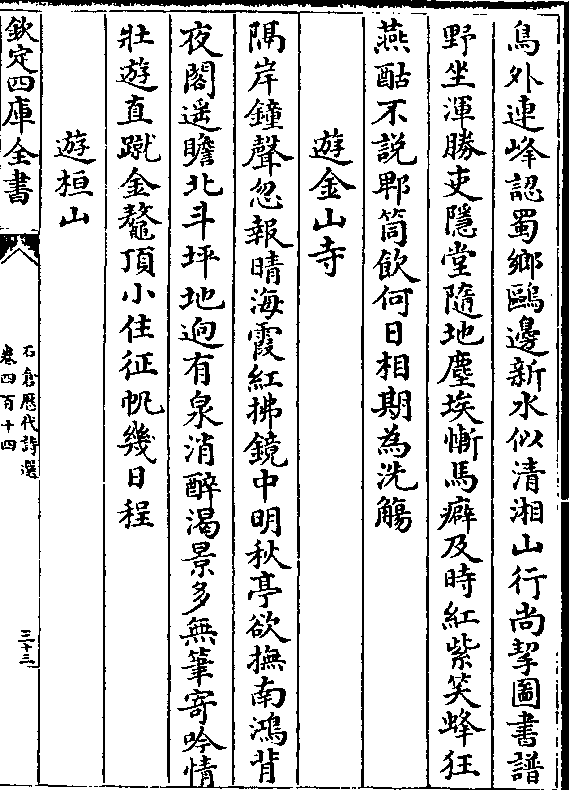 鳥外連峰認蜀鄉鷗邊新水似清湘山行尚挈圖書譜
野坐渾勝吏隱堂隨地塵埃慚馬癖及時紅紫笑蜂狂
燕酤不說郫筒飲何日相期為洗觴
遊金山寺
隔岸鐘聲忽報晴海霞紅拂鏡中明秋亭欲撫南鴻背
夜閣遥瞻北斗坪地逈有泉消醉渴景多無筆寄吟情
壯遊直蹴金鼇頂小住征帆幾日程
遊桓山
欽定四庫全書
石倉歷代詩選
卷四百十四
三十三